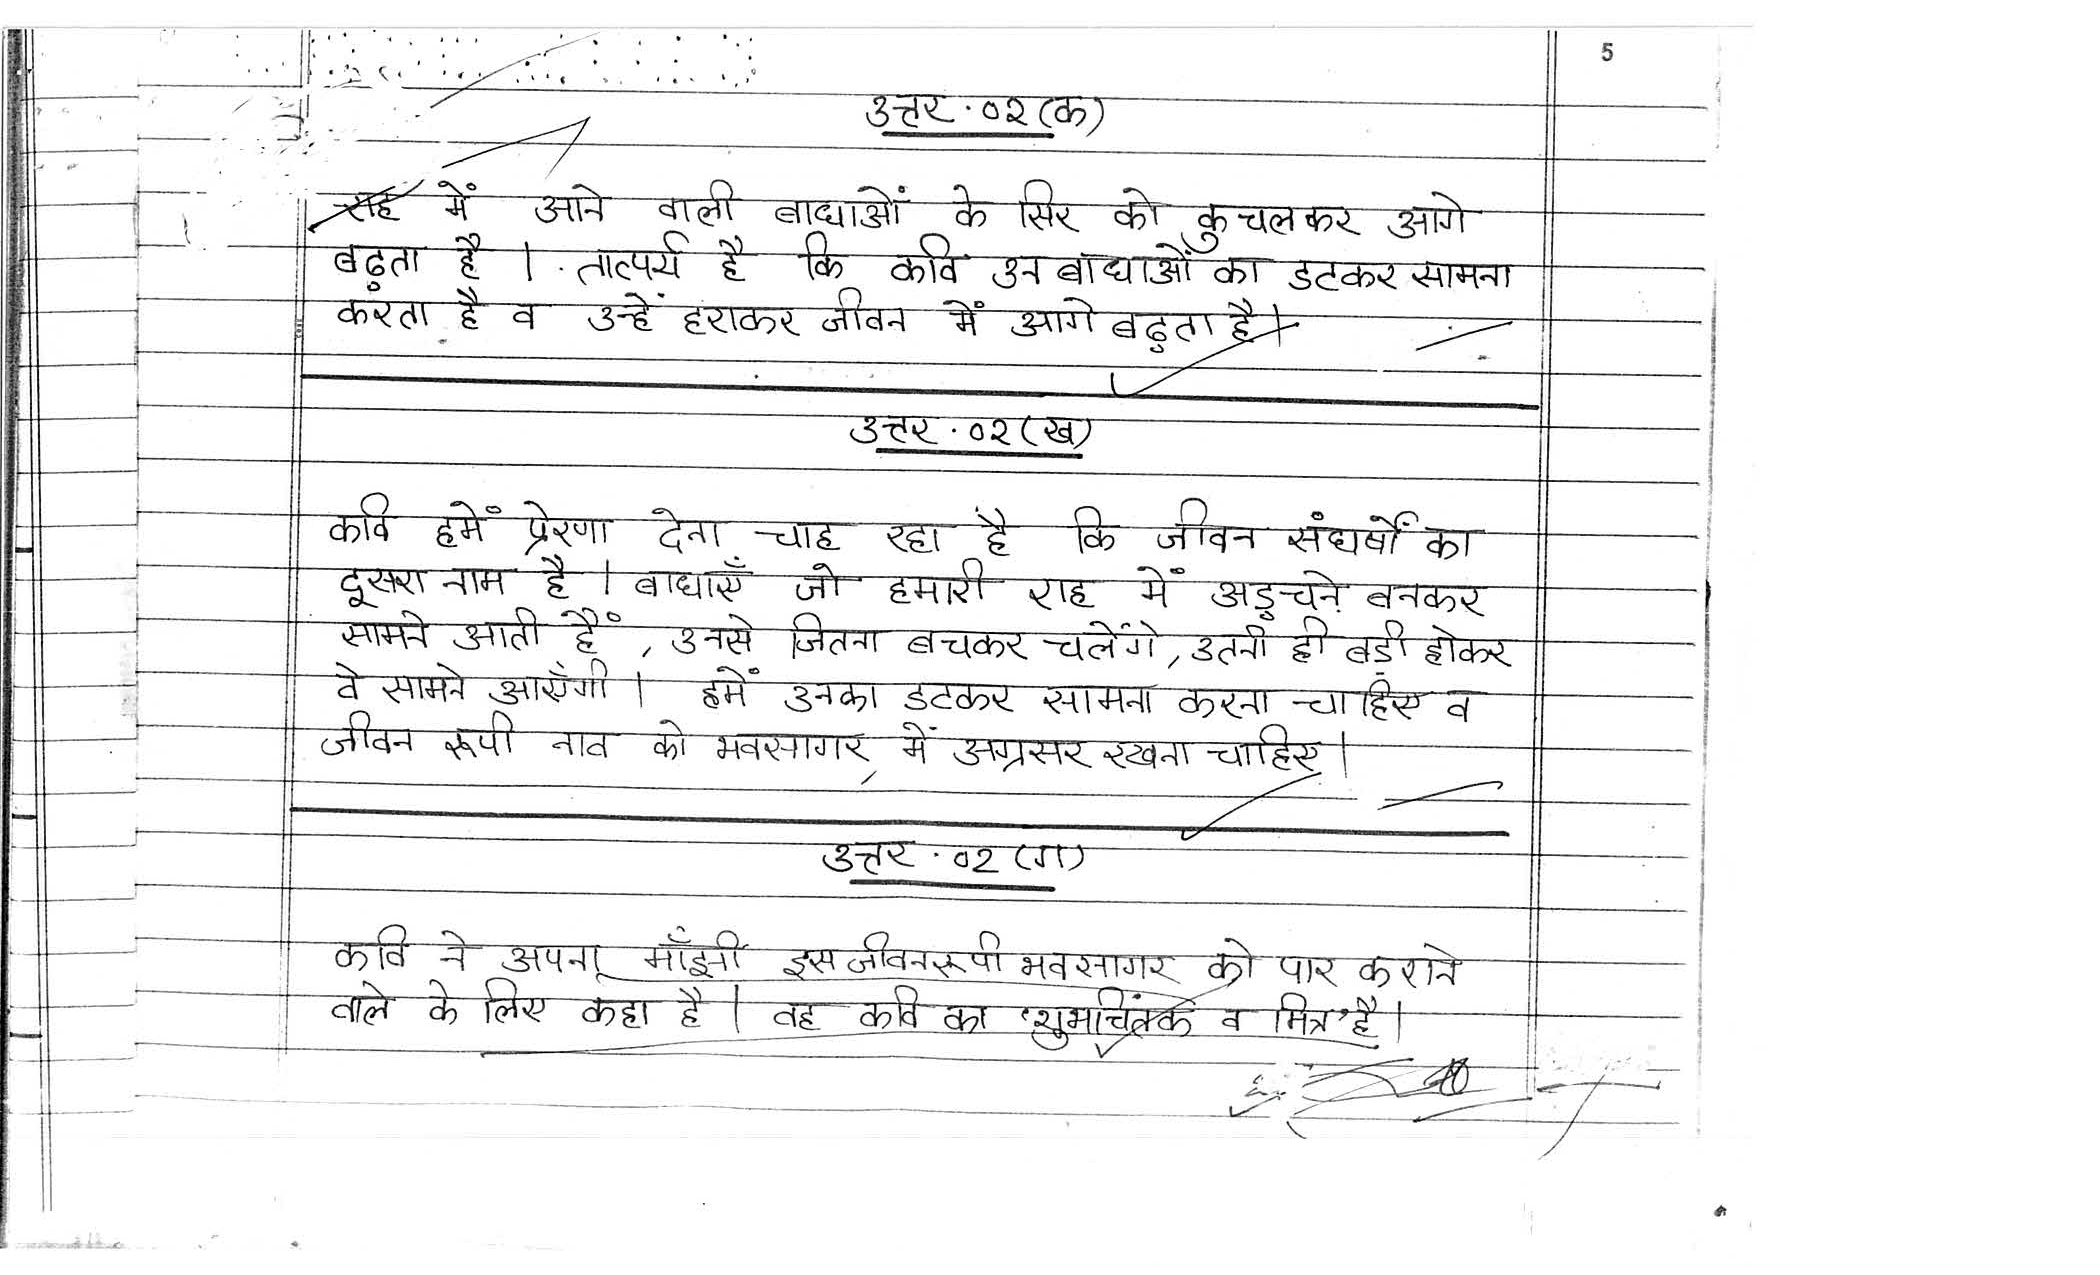 5
उत्तर.०२(क)
राह में आने वाली बाधाओं के सिर को कुचलकर आगे
बढ़ता है । तात्पर्य है कि कवि उन बाधाओं का डटकर सामना
करता है व उन्हें हराकर जीवन में आगे बढ़ता है।
उत्तर.०२(ख)
कवि हमें प्रेरणा देना चाह रहा है कि जीवन संघर्षों का
दूसरा नाम है। बाधाएँ जो हमारी राह में अड़चने बनकर
सामने आती हैं, उनसे जितना बचकर चलेंगे, उतनी ही बड़ी होकर
वे सामने आएँगी। हमें उनका डटकर सामना करना चाहिए व
जीवन रूपी नाव को भवसागर में अग्रसर रखना चाहिए।
उत्तर.०२(ग)
कवि ने अपना माँझी इस जीवनरूपी भवसागर को पार कराने
वाले के लिए कहा है। वह कवि का 'शुभचिंतक व मित्र' है।